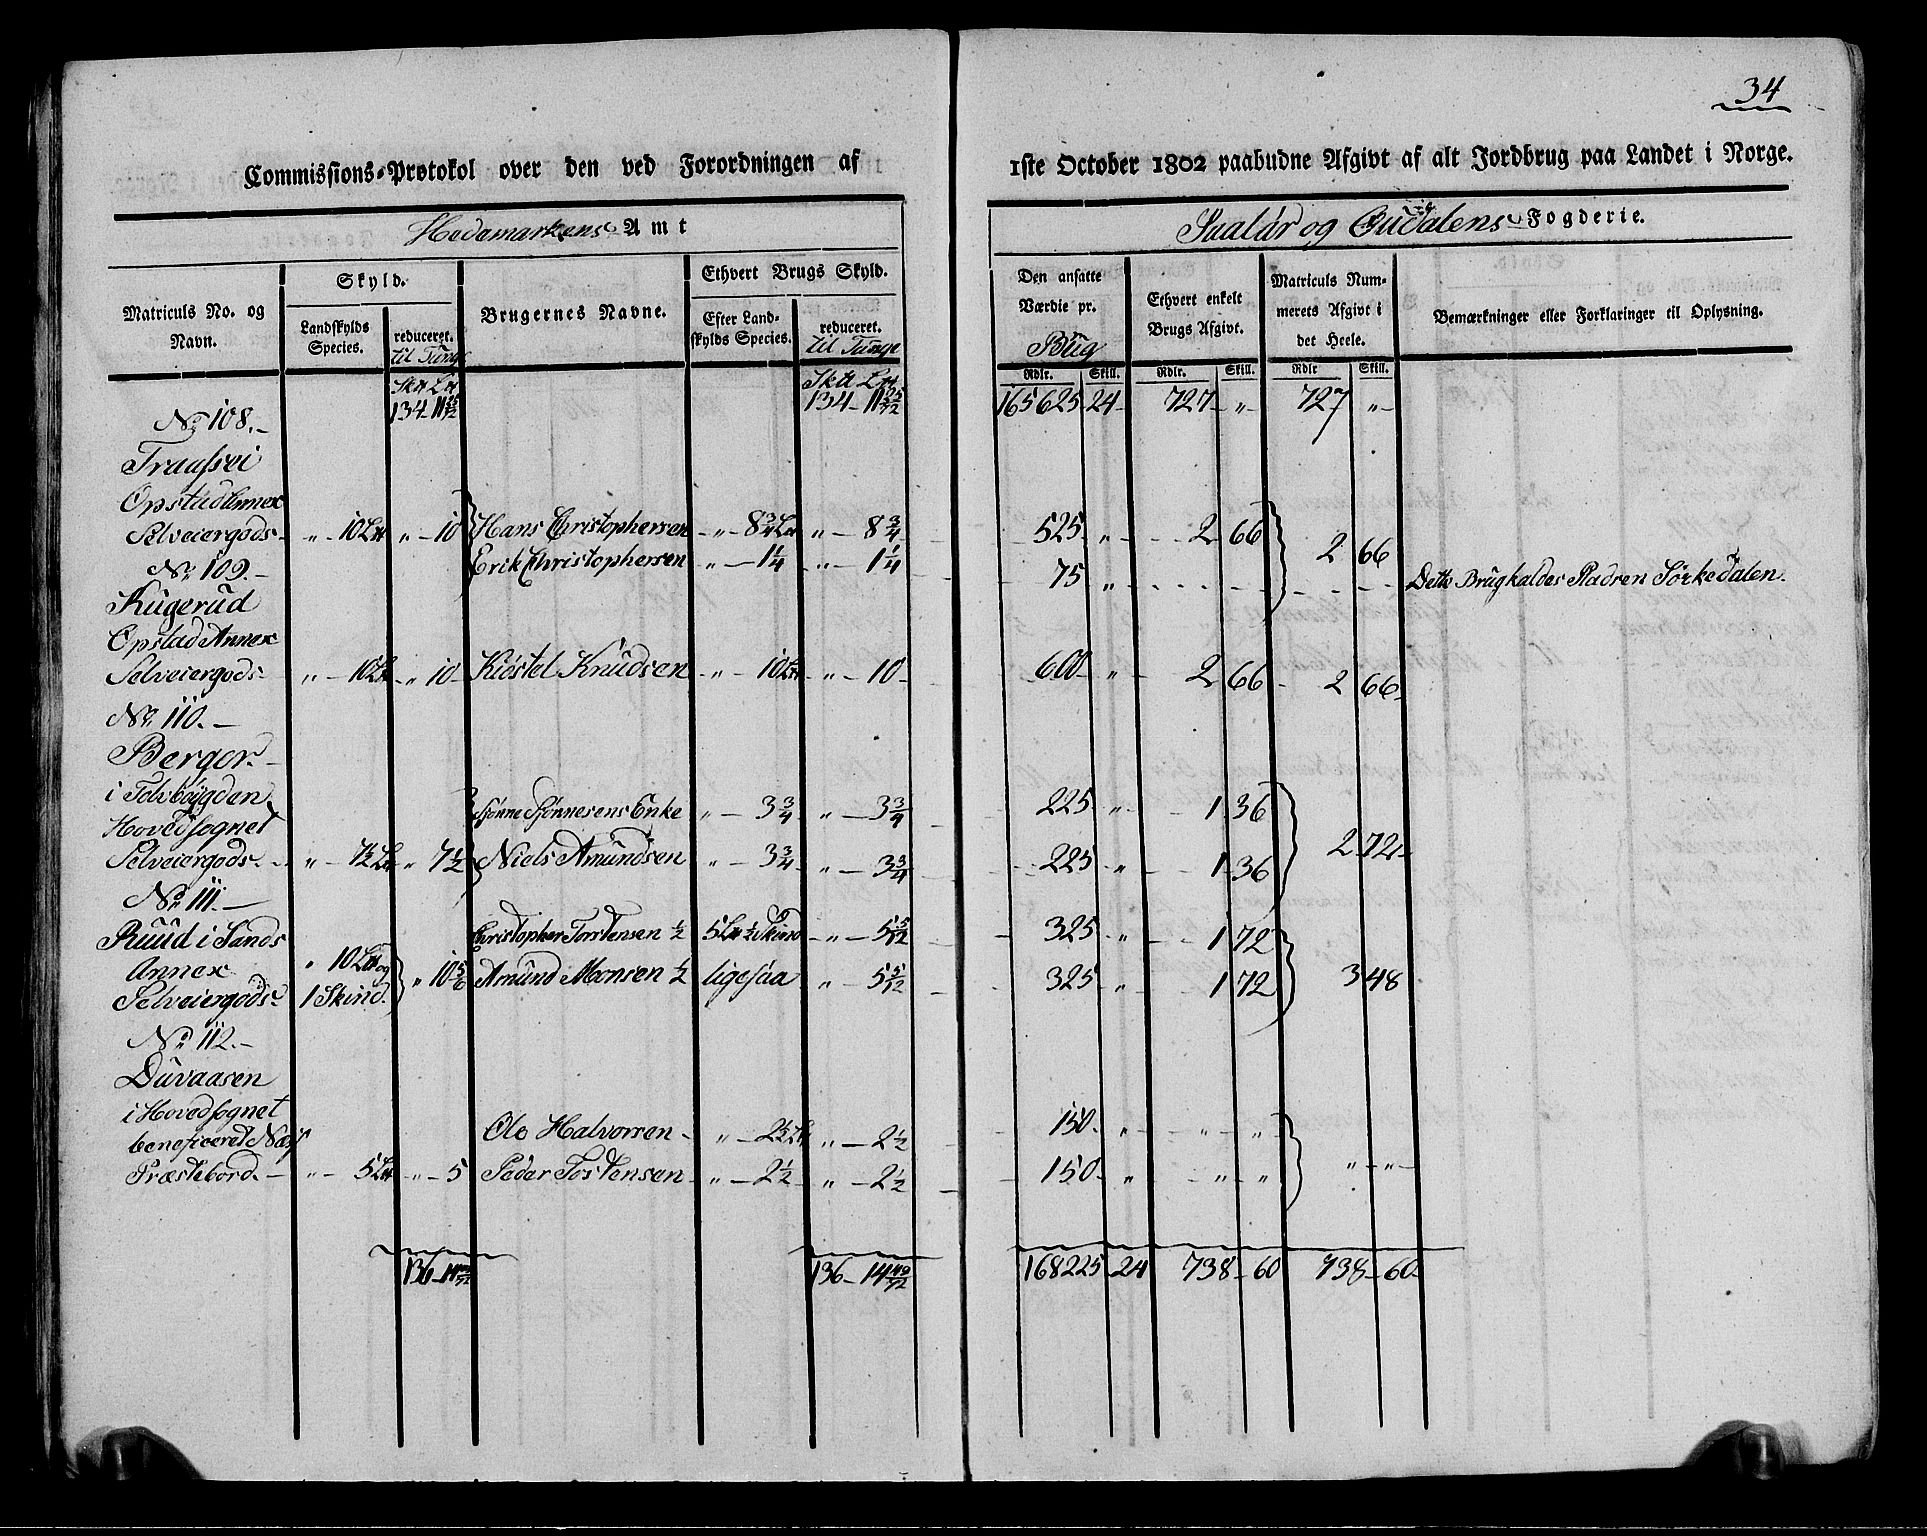 34
Commissions-Protokol over den ved Forordningen af 1ste October 1802 paabudne Afgivt af alt Jordbrug paa Landet i Norge.
Hedemarkens Amt
Fogderie.
Matriculs No. og Navn.
Skyld.
Landskylds Species.
reduceret. til Tunge
Brugernes Navne.
Ethvert Brugs Skyld.
Efter Landskylds Species.
reduceret. til Tunge
Den ansatte Værdie pr. Brug
Ethvert enkelt Brugs Afgivt.
Matriculs Nummerets Afgivt i det Heele.
Bemærkninger eller Forklaringer til Oplysning.
Rdlr. Skill. Rdlr. Skill. Rdlr Skill.
134 11 25/72 134 - 11 25/72 165625 - 24 - 727 - " 727 "
No 108.-
Opstad Annex
Selveiergods - " - 10 L " - 10 Hans Christophersen - " - 8 3/4 L " - 8 3/4 525 " 2 66 2 66
No 109.- Erik Christophersen " - 1 1/4 " - 1 1/4 75 " Dette Brug kaldes
Kugerud
Opstad Annex
Selveiergods " - 10 L " 10 - Kiøstel Knudsen - " - 10 L " - 10 - 600 - " 2 66 - 2 66 -
No 110. -
Berger -
i Tolvbøygden
Hovedsognet Enke " - 3 3/4 " - 3 3/4 225 " 1 36
Selveiergods - " - 7 1/2 L " 7 1/2 Niels Amundsen " - 3 3/4 " - 3 3/4 225 " 1 36 2 72 -
No 111. -
Ruud i Sands Christopher Torstensen 1/2 5 L 1/2 Skind - " - 5 5/12 325 " 1 72
Annex " 10 L og " 10 5/6 Amund Monsen 1/2 ligesaa " - 5 5/12 325 " 1 72 3 48
Selveiergods - 1 Skind.
No 112. -
Duvaasen
i Hovedsognet
beneficeret Ole Halvorsen - " - 2 1/2 L " - 2 1/2 150 - " " "
Præstebord. - " - 5 L " - 5 Peder Tostensen - " - 2 1/2 " - 2 1/2 150 " " - " " - "
136 - 14 49/72 136 - 14 49/72 168225 - 24 738 - 60 738 - 60 -